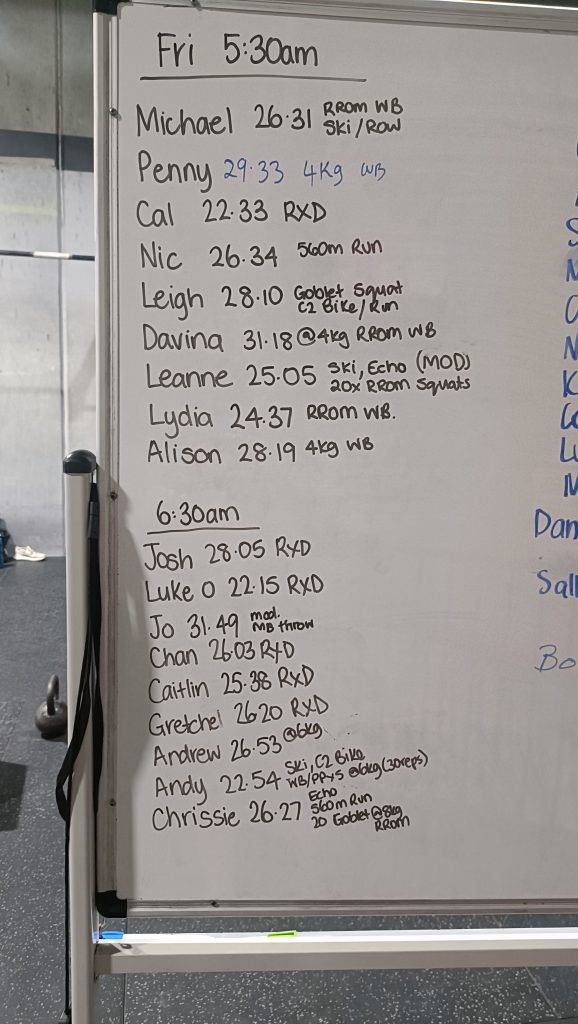 Fri 5:30am
Michael 26.31 RROM WB
Ski/Row
Penny 29.33 4Kg WB
Cal 22.33 RXD
Nic 26.34 560m Run
Leigh 28.10 Goblet Squat
C2 Bike/Run
Davina 31.18 @4kg RROM WB
Leanne 25.05 Ski, Echo (MOD)
20x RRom Squats
Lydia 24.37 RROM WB.
Alison 28.19 4kg WB
6:30am
Josh 28.05 RXD
Luke O 22.15 RXD
Jo 31.49 mod.
MB throw
Chan 26.03 RXD
Caitlin 25.38 RXD
Gretchel 26 20 RXD
Andrew 26.53 @6kg
Andy 22.54 Ski, C2 Bike
WB/ @6kg (30reps)
Chrissie 26.27 Echo
560m Run
20 Goblet @8kg
RRom
Dan
Sall
Bo